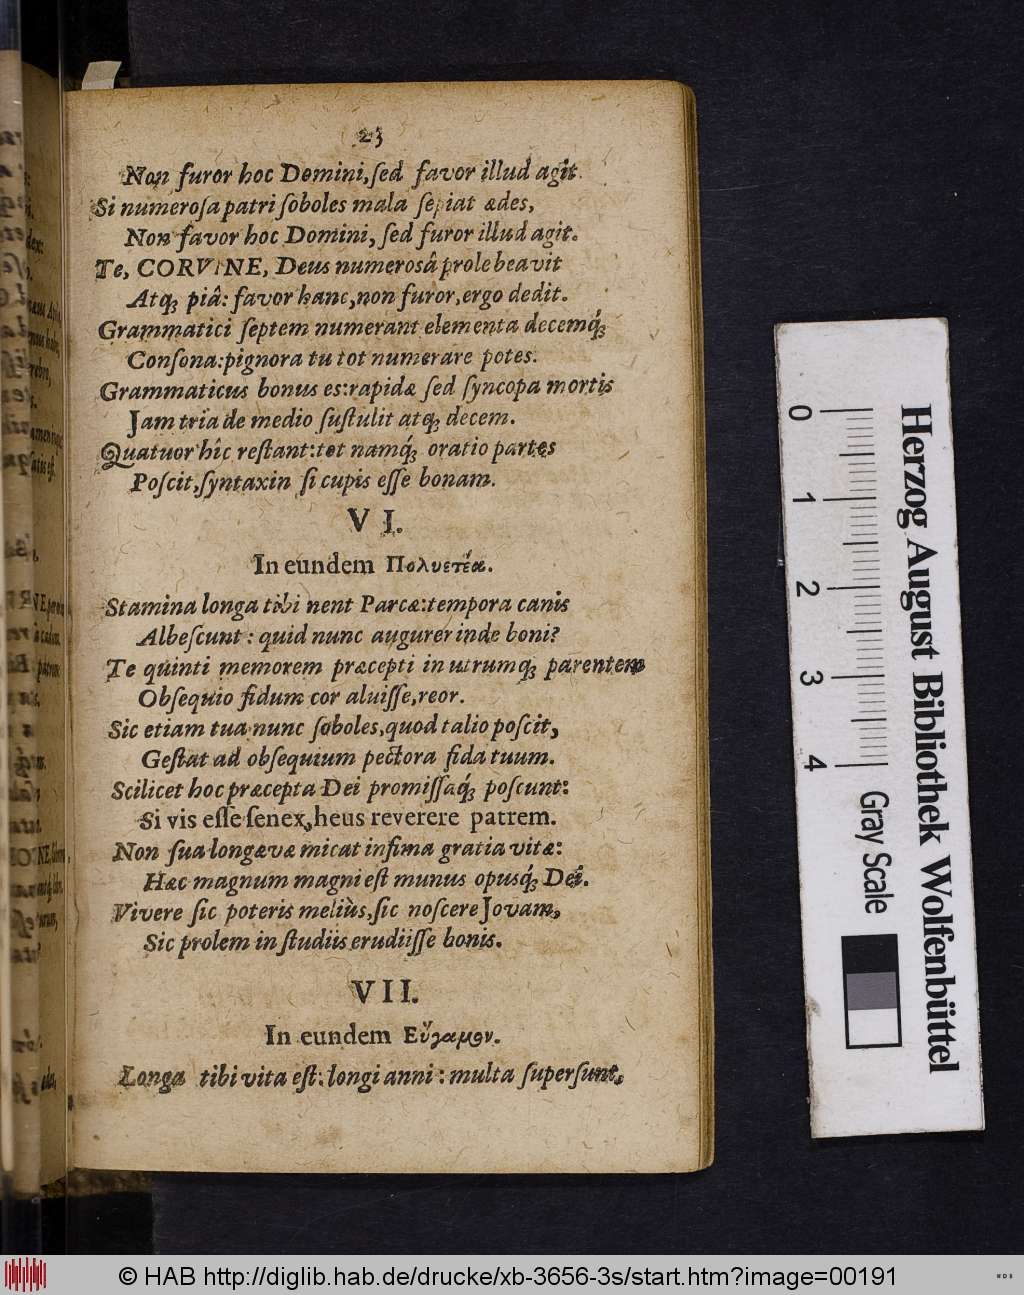 23
Non furor hoc Domini, ſed favor illud agit.
Si numeroſa patri ſoboles mala ſepiat ædes,
Non favor hoc Domini, ſed furor illud agit.
Te, CORVINE, Deus numerosâ prole beavit
Atq; piâ: favor hanc, non furor, ergo dedit.
Grammatici ſeptem numerant elementa decemq́;
Conſona: pignora tu tot numerare potes.
Grammaticus bonus es: rapidæ ſed ſyncopa mortis
Jam tria de medio ſuſtulit atq; decem.
Quatuor hîc reſtant: tot namq́; oratio partes
Poſcit, ſyntaxin ſi cupis eſſe bonam.
VI.
In eundem Πολυετέα.
Stamina longa tibi nent Parcæ: tempora canis
Albeſcunt: quid nunc augurer inde boni?
Te quinti memorem præcepti in utrumq; parentem
Obſequio fidum cor aluiſſe, reor.
Sic etiam tua nunc ſoboles, quod talio poſcit,
Geſtat ad obſequium pectora fida tuum.
Scilicet hoc præcepta Dei promiſſaq́; poſcunt:
Si vis eſſe ſenex, heus reverere patrem.
Non ſua longævæ micat infima gratia vitæ:
Hæc magnum magni eſt munus opusq́; Dei.
Vivere ſic poteris meliùs, ſic noſcere Jovam,
Sic prolem in ſtudiis erudiiſſe bonis.
VII.
In eundem Εὔγαμον.
Longa tibi vita eſt: longi anni: multa ſuperſunt,
0
1
2
3
4
Gray Scale
Herzog August Bibliothek Wolfenbüttel
© HAB http://diglib.hab.de/drucke/xb-3656-3s/start.htm?image=00191